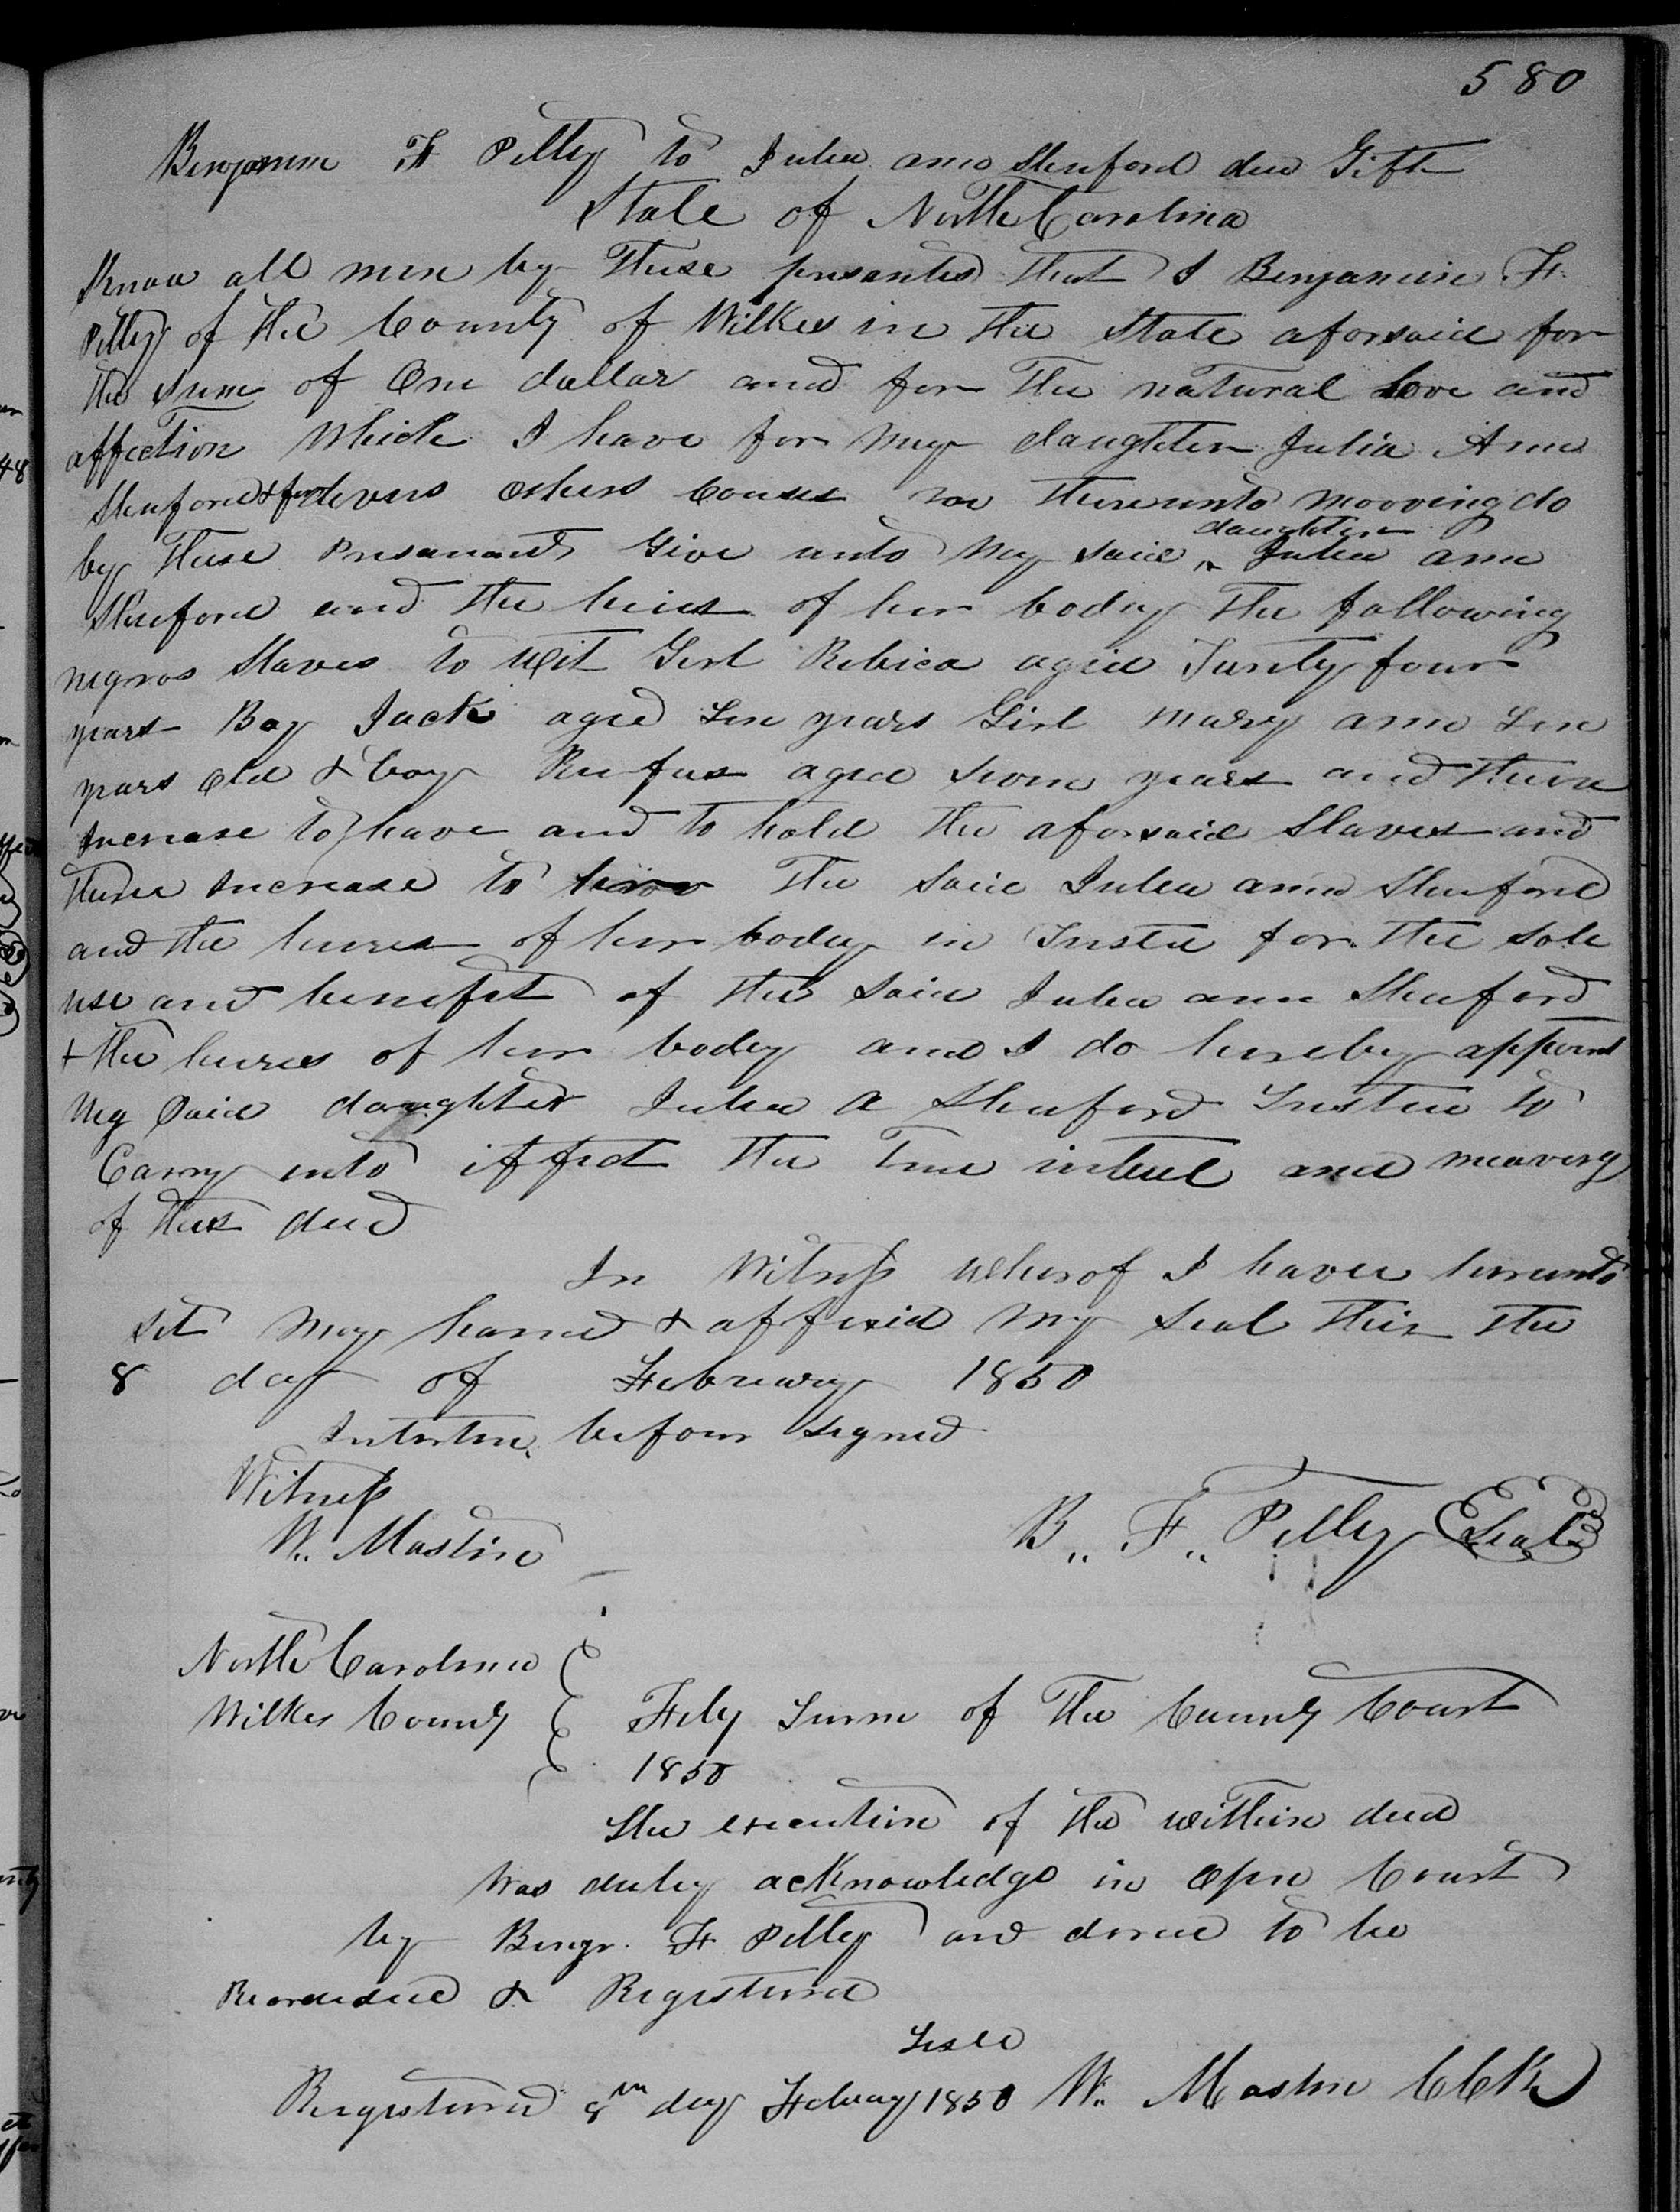 580
Benjamin F Petty to Julia ann Shuford deed Gift
State of North Carolina
Know all men by These presantes that I Benjamin F.
Petty of the County of Wilkes in the State aforsaid for
the sum of One dollar and for The natural Love and
affection Which I have for my daughter Julia Ann
Shuford & for divers others Couses me thereunto mooving do
by These Presanants Give unto My said daughter Julia ann
Shuford and the heirs of her body The following
negros Slaves to wit Girl Rebica aged Twenty four
years Boy Jack aged Ten years Girl mary ann Ten
years old & boy Rufus aged years and there
Increase to have and to hold the aforsaid Slaves and
there Increase to The said Julia ann Shuford
and the heires of her body in Truste for the sole
use and benefit of the said Julia ann Shuford
+ the heires of her body and I do hereby appoint
My Said daughter Julia A Shuford Trustee to
Carry into iffect the True intent and meaning
of this deed
In Witness Wherof I have hereunto
set my hand & affixid my seal this the
8 day of Febuary 1850
before signed
Witness
W. Mastin
B. F. Petty Seal
North Carolina
Wilkes County
Feby Turm of The County Court
1850
The execution of the within deed
Was duley acKnowledge in Open Court
by Benjn. F Petty and to be
& Registered
Test
Registered 8th day Febuary 1850 W. Mastin CClk